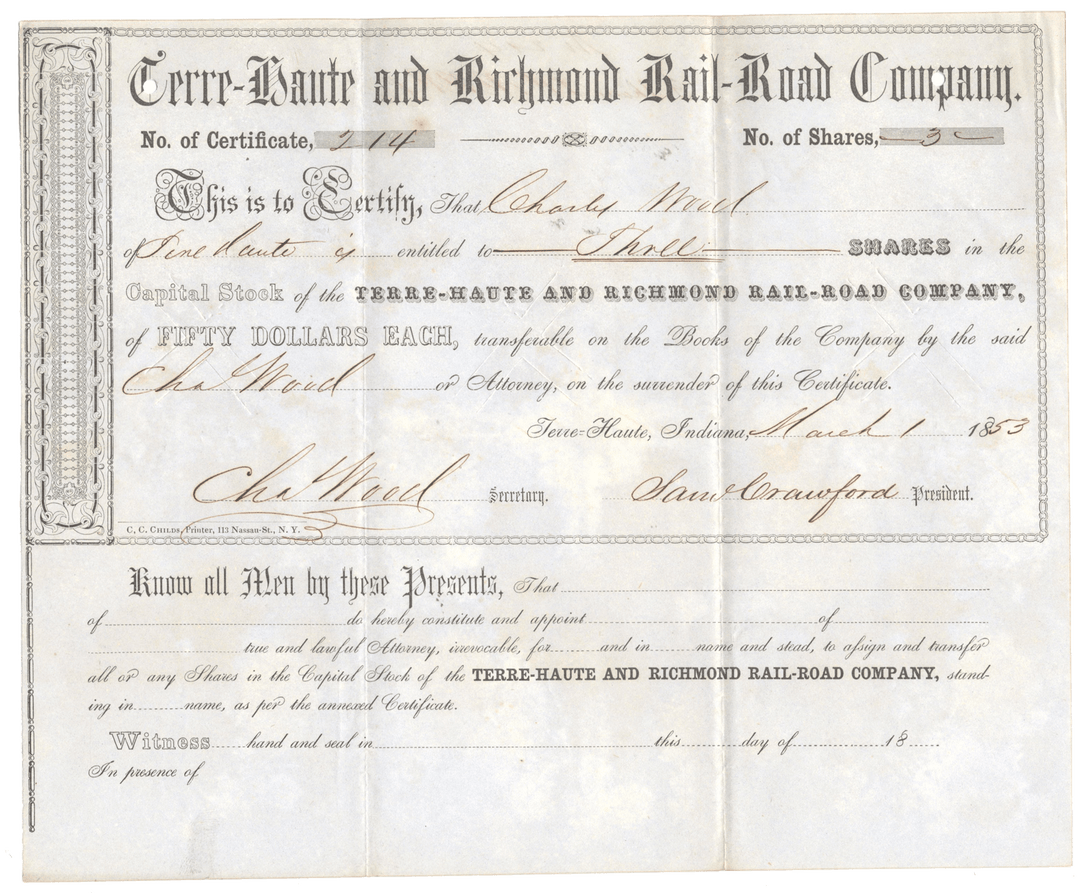 Terre-Haute and Richmond Rail-Road Company.
No. of Certificate, 214 No. of Shares, 3
This is to Certify, That Charles Wood
of Terre Haute is entitled to Three SHARES in the
Capital Stock of the TERRE-HAUTE AND RICHMOND RAIL-ROAD COMPANY,
of FIFTY DOLLARS EACH, transferable on the Books of the Company by the said
Chas Wood or Attorney, on the surrender of this Certificate.
Terre-Haute, Indiana, March 1 1853
Chas Wood Secretary. Saml Crawford President.
C. C. CHILDS, Printer, 113 Nassau-St., N. Y.
Know all Men by these Presents, That
of do hereby constitute and appoint of
true and lawful Attorney, irrevocable, for and in name and stead, to assign and transfer
all or any Shares in the Capital Stock of the TERRE-HAUTE AND RICHMOND RAIL-ROAD COMPANY, stand-
ing in name, as per the annexed Certificate.
Witness hand and seal in this day of 18
In presence of